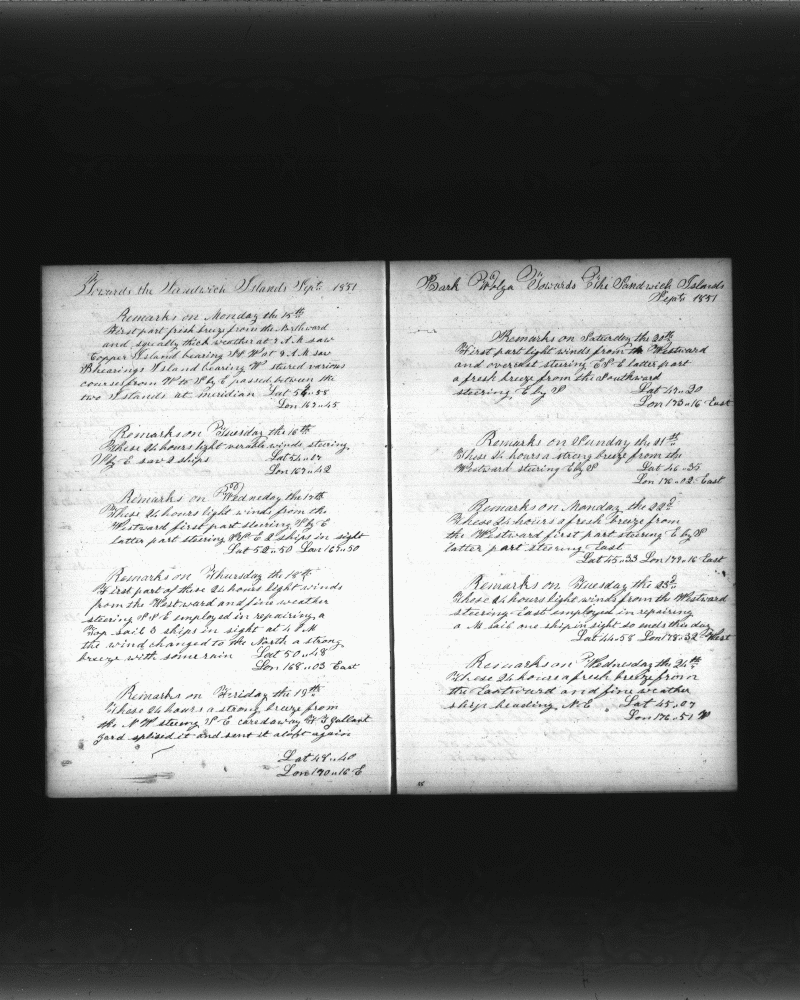 Towards the Sandwich Islands Sept 1851
Remarks on Monday the 15th
First part fresh breeze from the Northward
and squally thick weather at 7 A.M saw
Copper Island bearing W at 9 A.M saw
Bhearings Island bearing W steered various
courses from W to S by E passed between the
two Islands at meridian Lat 54"58
Lon 167"45
Remarks on Tuesday the 16th
These 24 hours light verable winds steering
by E saw 2 ships Lat 54"07
Lon 167"42
Remarks on Wedneday the 17th
These 24 hours light winds from the
Westward first part steering S by E
latter part steering SSE 2 ships in sight
Lat 52"50 Lon 167"50
Remarks on Thursday the 18th
First part of these 24 hours light winds
from the Westward and fine weather
steering S S E employed in repairing a
Top sail 3 ships in sight at 4 P M
the wind changed to the North a strong
breeze with some rain Lat 50"48
Lon 168"03 East
Remarks on Friday the 19th
These 24 hours a strong breeze from
the N W steering S E caredaway gallant
yard splised it and sent it aloft again
Lat 48"40
Lon 170"16 E
Bark Wolga Towards The Sandwich Islands
Sept 1851
Remarks on Saturday the 20th
First part light winds from the Westward
and overcast steering E S E latter part
a fresh breeze from the Southward
steering E by S Lat 47"30
Lon 173"16 East
Remarks on Sunday the 21st
These 24 hours a strong breeze from the
Westward steering E by S Lat 46"35
Lon 176"02 East
Remarks on Monday the 22d
These 24 hours a fresh breeze from
the Westward first part steering E by S
latter part steering East
Lat 45"33 Lon 179"16 East
Remarks on Tuesday the 23d
These 24 hours light winds from the Westward
steering East employed in repairing
a M sail one ship in sight so ends this day
Lat 44"58 Lon 178"32 West
Remarks on Wednesday the 24th
These 24 hours a fresh breeze from
the Eastward and fine weather
ship heading N E Lat 45"07
Lon 176"51 W